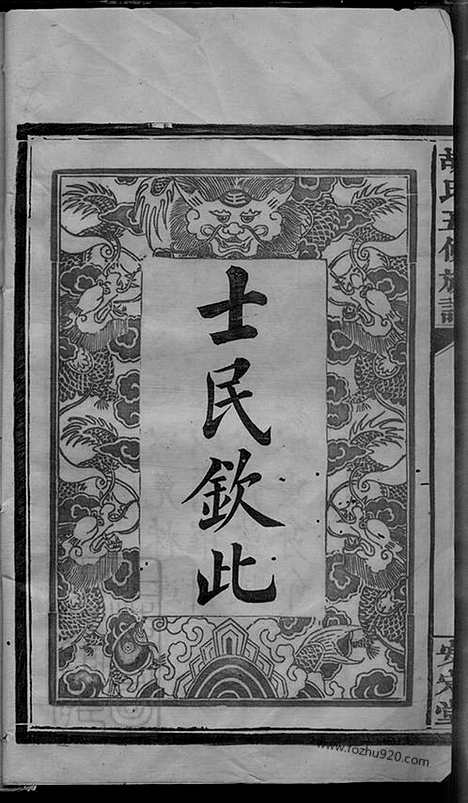 士民欽此
胡氏五修族譜
安定堂
www.fozhu920.com